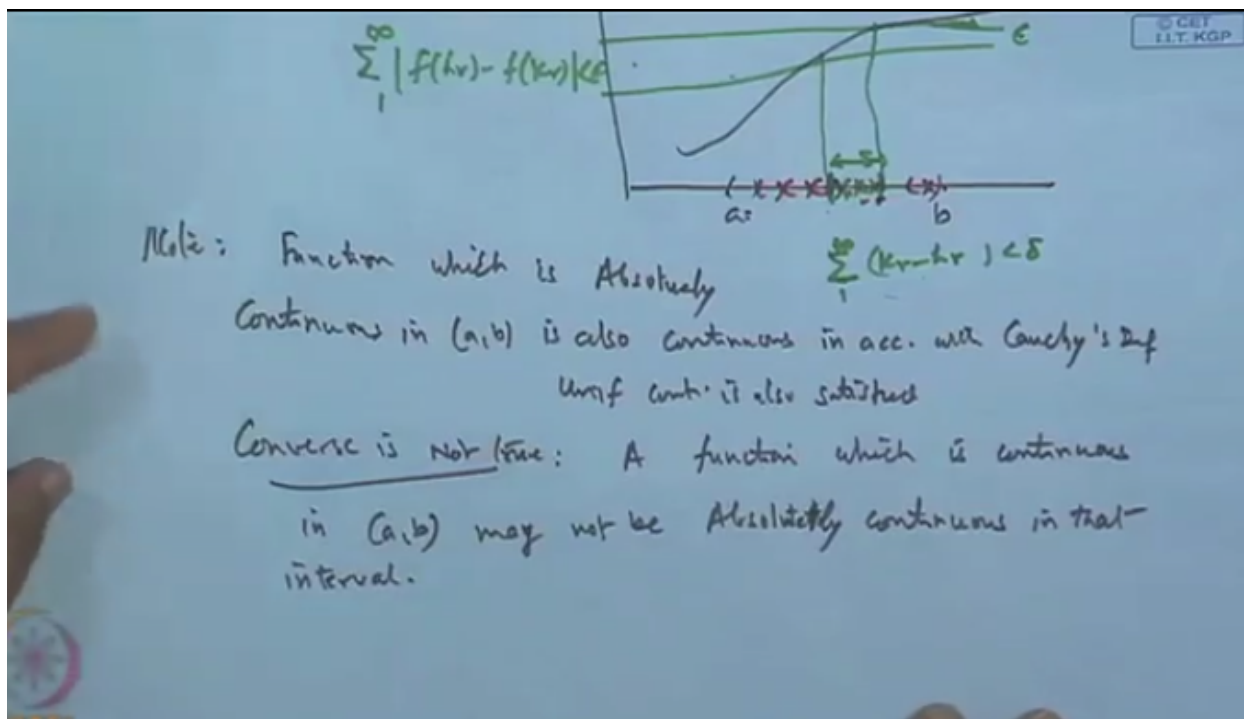 © CET
I.I.T. KGP
∞
∑ |f(hr) - f(kr)| < ε
1
ε
δ
a
b
Note: Function which is Absolutely
∞
∑ (kr - hr) < δ
1
Continuous in (a,b) is also continuous in acc. with Cauchy's Def
Unif cont. is also satisfied
Converse is Not true: A function which is continuous
in (a,b) may not be Absolutely continuous in that
interval.